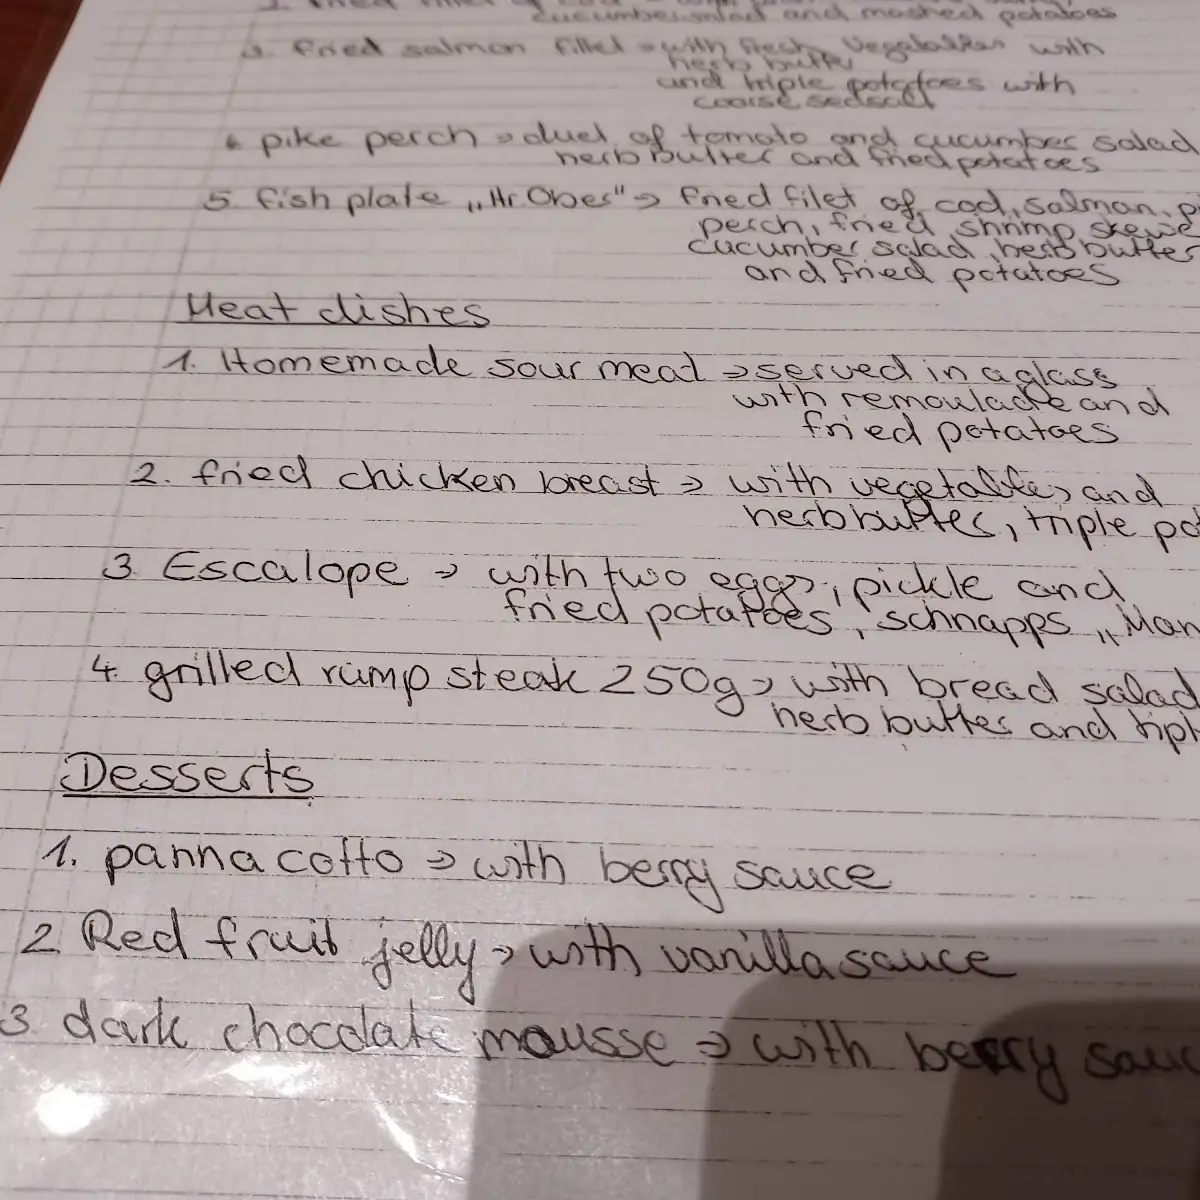 2. fried fillet of cod
cucumbersalad and mashed potatoes
3. fried salmon fillet → with fresh vegetables with
herb butter
and triple potatoes with
coarse seasalt
pike perch → duel of tomato and cucumber salad
herb butter and fried potatoes
5. fish plate „Hr. Ober" → fried filet of cod, salmon,
perch, fried shrimp skewe
cucumber salad, herb butter
and fried potatoes
Meat dishes
1. Homemade sour meat → served in a glass
with remoulade and
fried potatoes
2. fried chicken breast → with vegetables and
herb butter, triple pot
3. Escalope → with two eggs, pickle and
fried potatoes, schnapps „Man
4. grilled rump steak 250g → with bread salad
herb butter and tripl
Desserts
1. panna cotto → with berry sauce
2 Red fruit jelly → with vanilla sauce
3. dark chocolate mousse → with berry sauc